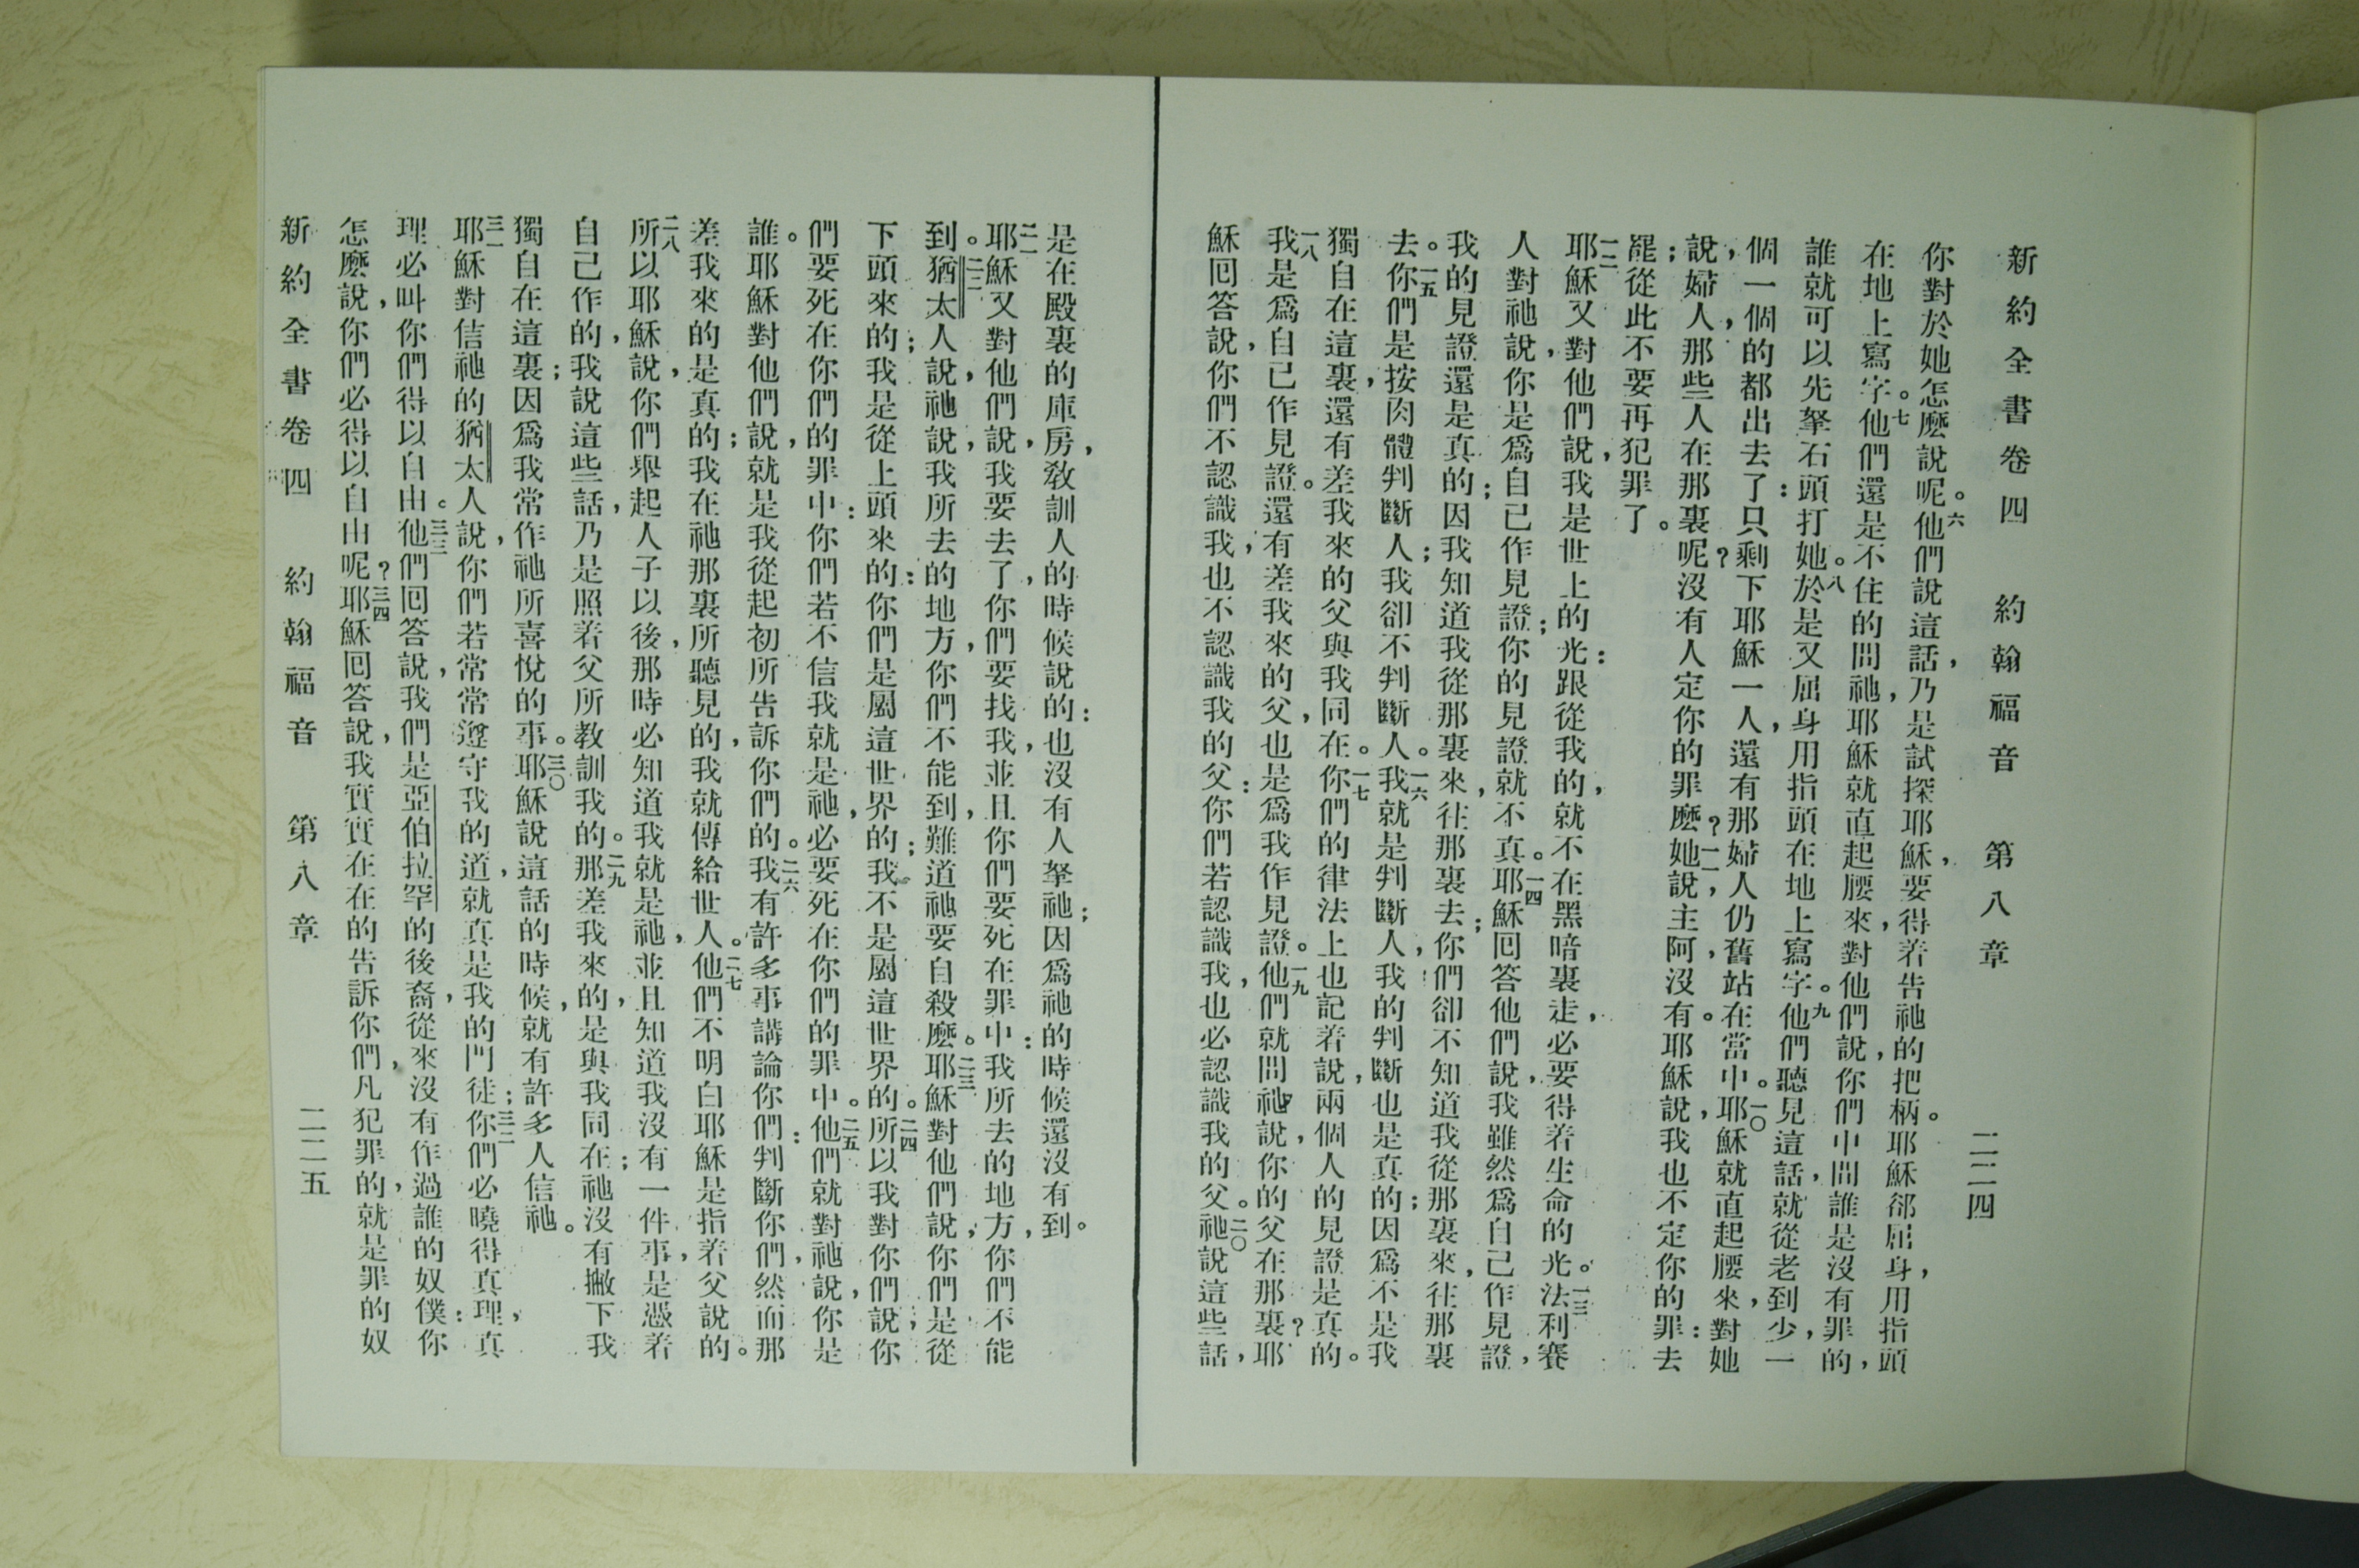 新約全書卷四　約翰福音　第八章　二二四
你對於她怎麼說呢。六他們說這話，乃是試探耶穌，要得着告祂的把柄。耶穌郤屈身，用指頭
在地上寫字。七他們還是不住的問祂，耶穌就直起腰來，對他們說，你們中間誰是沒有罪的，
誰就可以先拏石頭打她。八於是又屈身用指頭在地上寫字。九他們聽見這話，就從老到少，一
個一個的都出去了：只剩下耶穌一人，還有那婦人仍舊站在當中。一〇耶穌就直起腰來，對她
說，婦人，那些人在那裏呢？沒有人定你的罪麼？一一她說，主阿，沒有。耶穌說，我也不定你的罪：去
罷；從此不要再犯罪了。
一二耶穌又對他們說，我是世上的光：跟從我的，就不在黑暗裏走，必要得着生命的光。一三法利賽
人對祂說，你是爲自己作見證；你的見證就不真。一四耶穌囘答他們說，我雖然爲自己作見證，
我的見證還是真的；因我知道我從那裏來，往那裏去；你們卻不知道我從那裏來，往那裏
去。一五你們是按肉體判斷人；我卻不判斷人。一六我就是判斷人，我的判斷也是真的；因爲不是我
獨自在這裏，還有差我來的父與我同在。一七你們的律法上也記着說，兩個人的見證是真的。
一八我是爲自己作見證。還有差我來的父，也是爲我作見證。一九他們就問祂說，你的父在那裏？耶
穌囘答說，你們不認識我，也不認識我的父：你們若認識我，也必認識我的父。二〇祂說這些話，
是在殿裏的庫房，敎訓人的時候說的：也沒有人拏祂；因爲祂的時候還沒有到。
二一耶穌又對他們說，我要去了，你們要找我，並且你們要死在罪中：我所去的地方，你們不能
到。二二猶太人說，祂說，我所去的地方，你們不能到，難道祂要自殺麼。二三耶穌對他們說，你們是從
下頭來的；我是從上頭來的：你們是屬這世界的；我不是屬這世界的。二四所以我對你們說，你
們要死在你們的罪中：你們若不信我就是祂，必要死在你們的罪中。二五他們就對祂說，你是
誰。耶穌對他們說，就是我從起初所告訴你們的。二六我有許多事講論你們：判斷你們，然而那
差我來的是真的；我在祂那裏所聽見的，我就傳給世人。二七他們不明白耶穌是指着父說的。
二八所以耶穌說，你們舉起人子以後，那時必知道我就是祂，並且知道我沒有一件事，是憑着
自己作的，我說這些話，乃是照着父所敎訓我的。二九那差我來的，是與我同在；祂沒有撇下我
獨自在這裏；因爲我常作祂所喜悅的事。三〇耶穌說這話的時候，就有許多人信祂。
三一耶穌對信祂的猶太人說，你們若常常遵守我的道，就真是我的門徒；三二你們必曉得真理，真
理必叫你們得以自由。三三他們囘答說，我們是亞伯拉罕的後裔，從來沒有作過誰的奴僕：你
怎麼說，你們必得以自由呢？三四耶穌囘答說，我實實在在的告訴你們，凡犯罪的，就是罪的奴
新約全書卷四　約翰福音　第八章　二二五